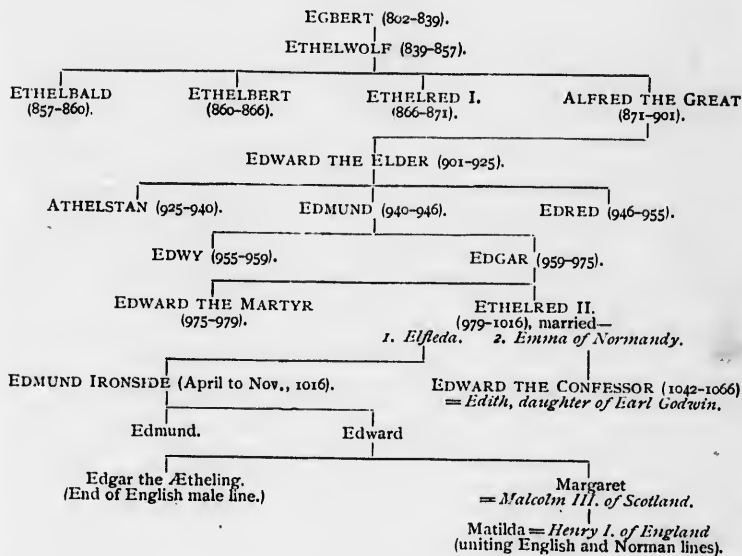 EGBERT (802-839).
ETHELWOLF (839-857).
ETHELBALD ETHELBERT ETHELRED I. ALFRED THE GREAT
(857-860). (860-866). (866-871). (871-901).
EDWARD THE ELDER (901-925).
ATHELSTAN (925-940). EDMUND (940-946). EDRED (946-955).
EDWY (955-959). EDGAR (959-975).
EDWARD THE MARTYR ETHELRED II.
(975-979). (979-1016), married—
1. Elfleda. 2. Emma of Normandy.
EDMUND IRONSIDE (April to Nov., 1016). EDWARD THE CONFESSOR (1042-1066)
= Edith, daughter of Earl Godwin.
Edmund. Edward
Edgar the Ætheling. Margaret
(End of English male line.) = Malcolm III. of Scotland.
Matilda = Henry I. of England
(uniting English and Norman lines).